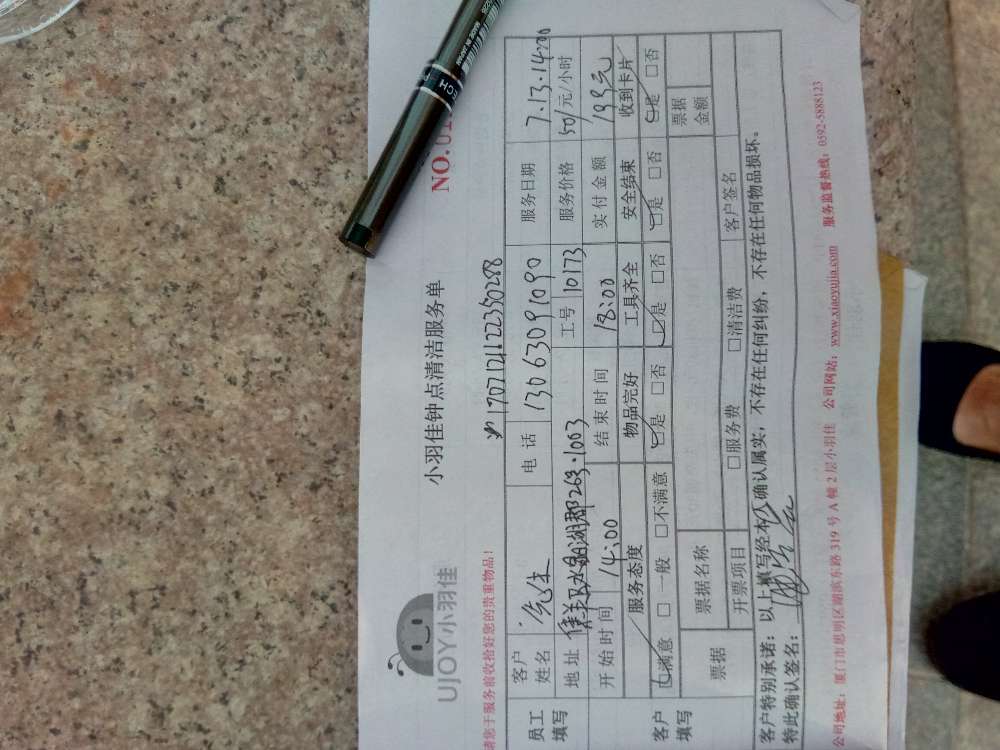 UJOY小羽佳
小羽佳钟点清洁服务单
NO.
请您于服务前收拾好您的贵重物品!
1707121122350288
员工填写
客户姓名
先生
电话
13063091090
服务日期
7.13.14:00
地址
263.1003
工号
10173
服务价格
50/元/小时
开始时间
14:00
结束时间
18:00
实付金额
199元
客户填写
服务态度
物品完好
工具齐全
安全结束
收到卡片
□满意 □一般 □不满意
□是 □否
□是 □否
□是 □否
□是 □否
票据
票据名称
票据金额
开票项目
□服务费 □清洁费
客户签名
客户特别承诺:以上填写经本人确认属实,不存在任何纠纷,不存在任何物品损坏。
特此确认签名:
公司地址:厦门市思明区湖滨东路 319 号 A 幢 2 层小羽佳 公司网站:www.xiaoyujia.com 服务监督热线:0592-5888123